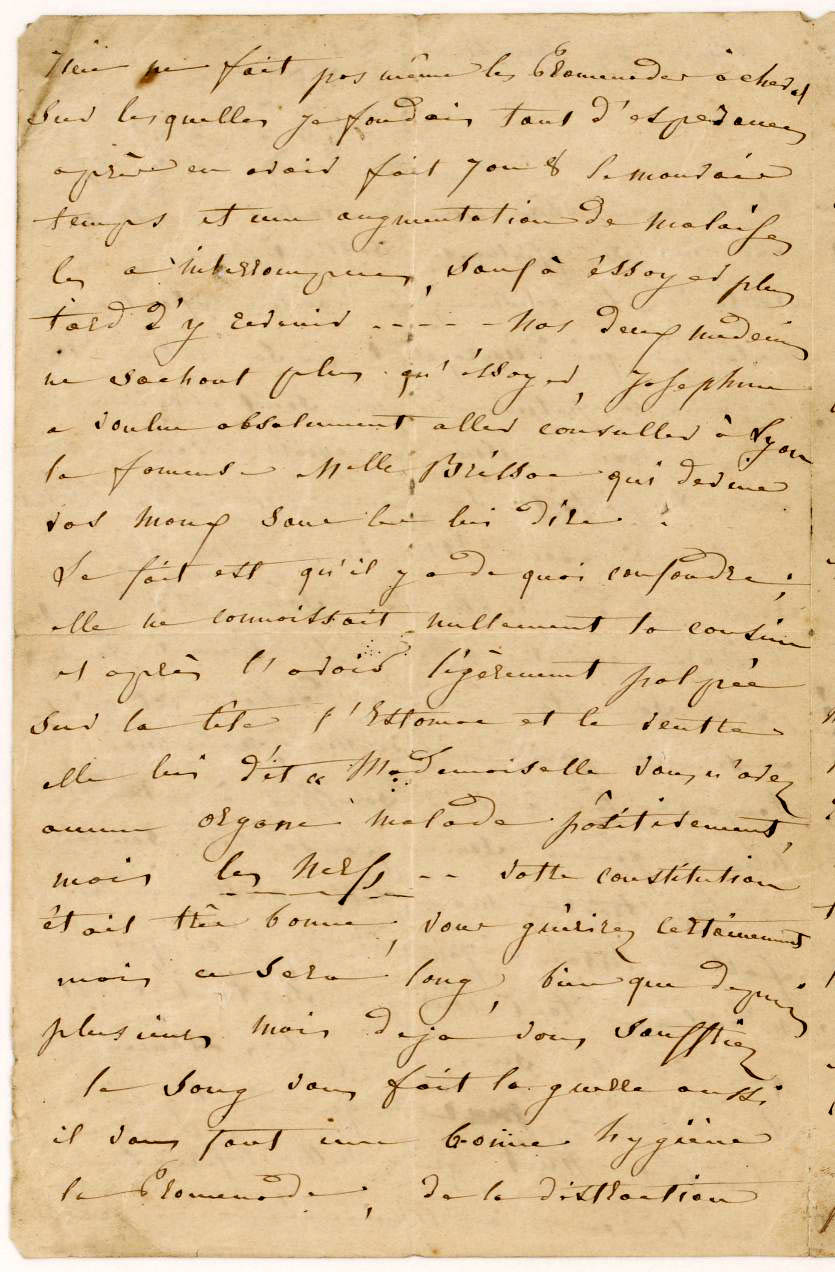 ne fait pas même les Promenades à cheval
sur lesquelles je fondais tant d'esperances
après en avoir fait 7 ou 8 le mauvais
temps et une augmentation de malaises
les a interrompues, sauf à éssayer plus
tard d'y revenir - - - - - Nos deux médecins
ne sachant plus qu'éssayer, Joséphine
a voulu absolument aller consulter à Lyon
la fameuse Melle qui devine
vos maux sans les lui dire.
Le fait est qu'il y a de quoi confondre ;
elle ne connoissait nullement la cousine
et après l'avoir légèrement palpée
sur la tête l'Estomac et le ventre
elle lui dit « Mademoiselle vous n'avez
aucun organe malade positivement,
mais les Nerfs - - votre constitution
était très bonne, vous guérirez certainement
mais ce sera long, bien que depuis
plusieurs mois deja vous souffriez
le sang vous fait la guerre aussi
il vous faut une bonne hygiène
la Promenade, de la distraction